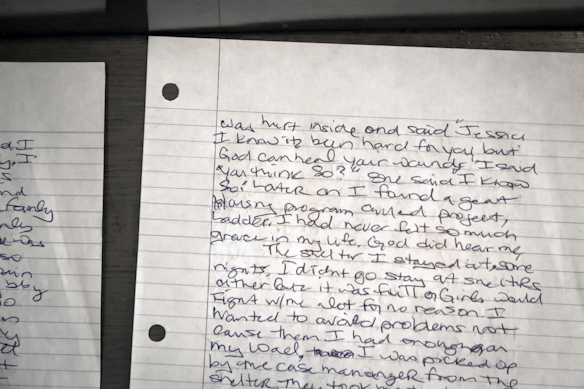 d I
y, I
s
nd
family
nly
so
bby
so
d
t
was hurt inside and said "Jessica
I know it's been hard for you but
God can heal your wounds" I said
"you think so?" She said "I know
So." Later on I found a great
Housing program called project
Ladder. I had never felt so much
grace in my life. God did hear me,
The shelter I stayed at some
nights. I didnt go stay at sheltrs
often cuz it was full of Girls would
Fight w/me alot for no reason. I
wanted to avoid problems not
cause them. I had enough on
my load, I was picked up
by the case mananger from the
shelter they took